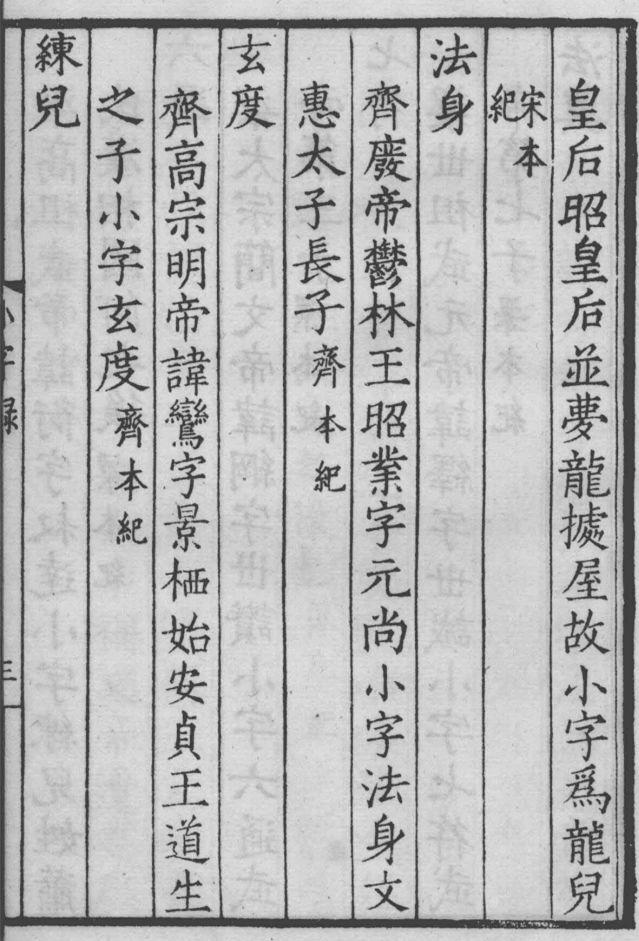 皇后昭皇后並夢龍據屋故小字爲龍兒
宋本紀
法身
齊廢帝鬱林王昭業字元尚小字法身文
惠太子長子齊本紀
玄度
齊高宗明帝諱鸞字景栖始安貞王道生
之子小字玄度齊本紀
練兒
小字録
三